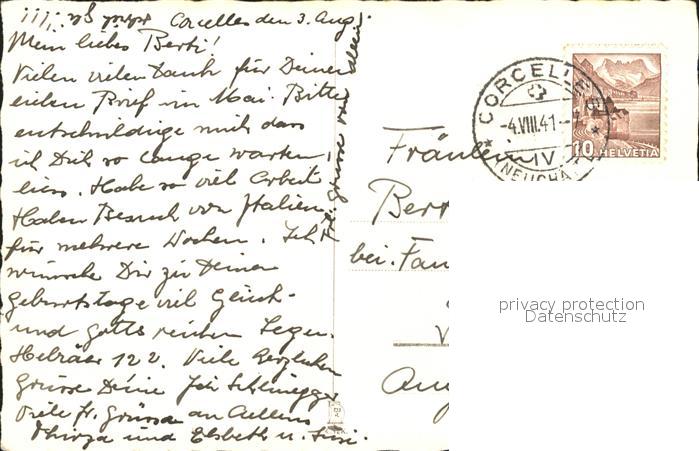 Corcelles den 3. Aug.
Mein liebes Berti!
Vielen vielen Dank für Deinen
lieben Brief im Mai. Bitte
entschuldige mich dass
ich Dich so lange warten
liess. Habe so viel Arbeit
Haben Besuch von Italien
für mehrere Wochen. Ich
wünsche Dir zu Deinem
Geburtstage viel Glück
und Gottes reichen Segen.
Hebräer 12 2. Viele herzlichen
Grüsse Deine
Viele fr. Grüsse an
und Elsbeth u. Susi.
CORCELLES
-4.VIII.41.-
IV
(NEUCHÂ
10 HELVETIA
Fräulein
Bert
bei. Fam
V
privacy protection
Datenschutz